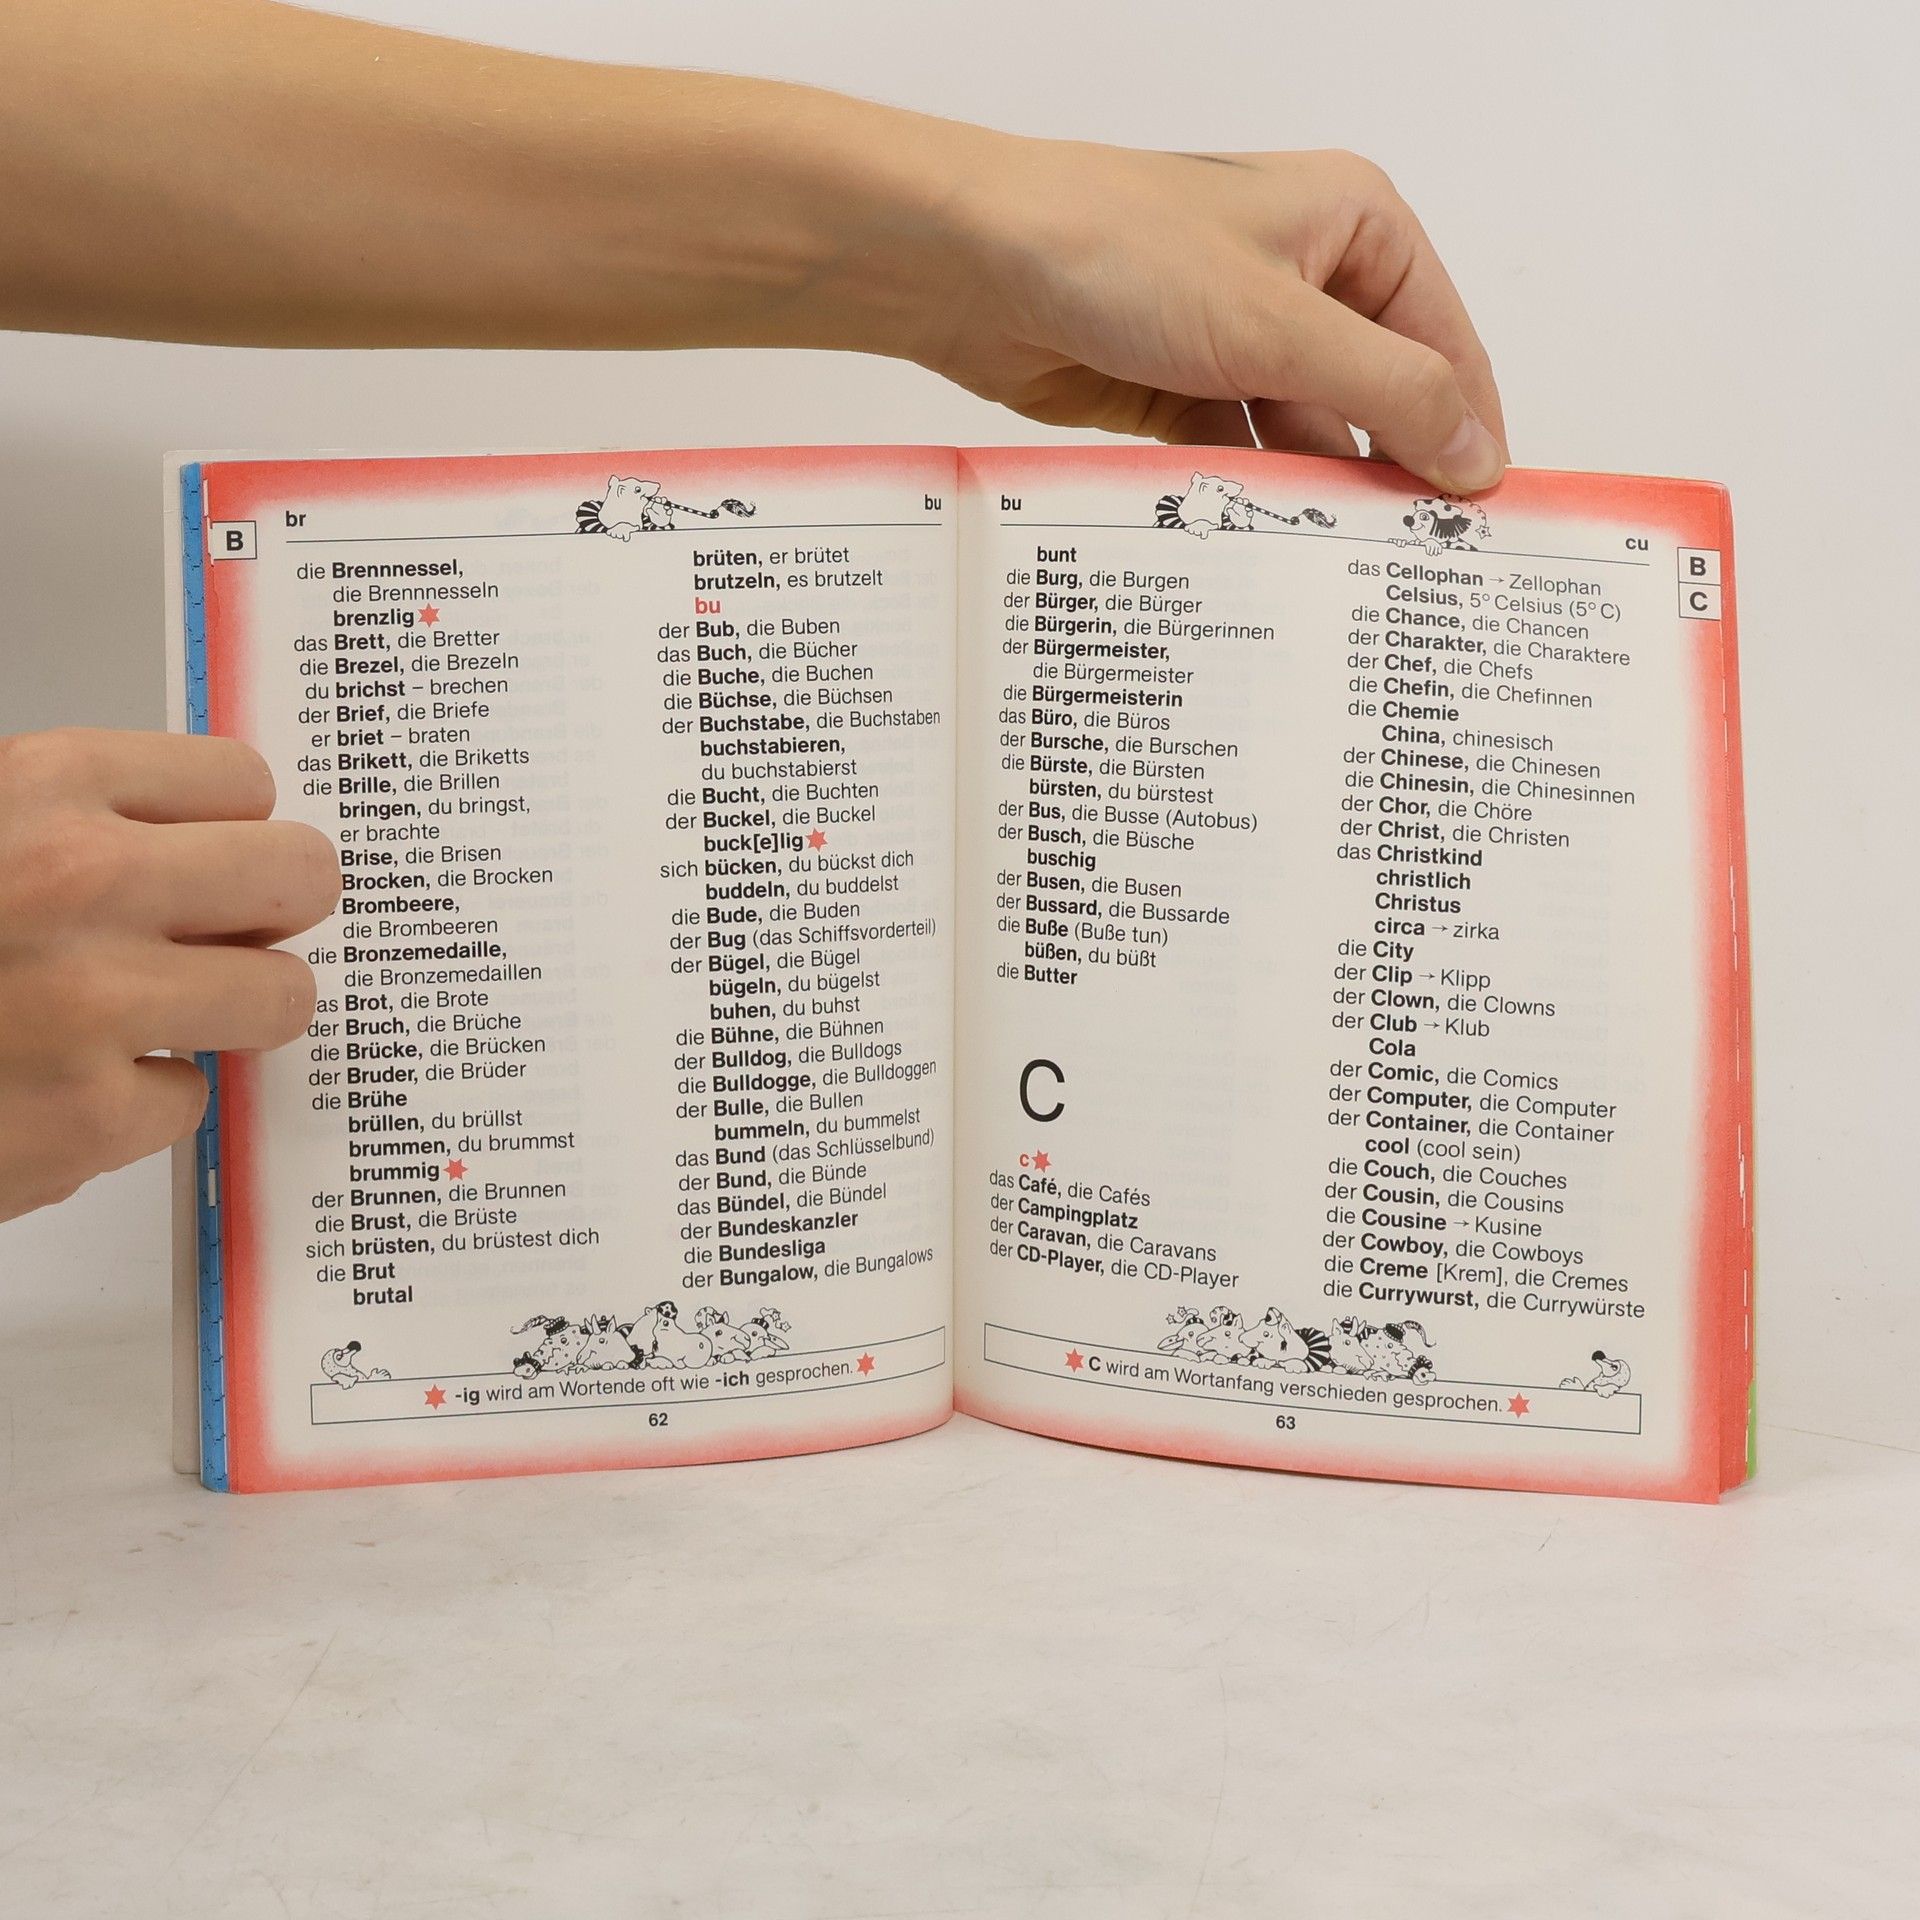 B
br
bu
die Brennnessel,
die Brennnesseln
brenzlig
das Brett, die Bretter
die Brezel, die Brezeln
du brichst – brechen
der Brief, die Briefe
er briet – braten
das Brikett, die Briketts
die Brille, die Brillen
bringen, du bringst,
er brachte
Brise, die Brisen
Brocken, die Brocken
Brombeere,
die Brombeeren
die Bronzemedaille,
die Bronzemedaillen
as Brot, die Brote
der Bruch, die Brüche
die Brücke, die Brücken
der Bruder, die Brüder
die Brühe
brüllen, du brüllst
brummen, du brummst
brummig
der Brunnen, die Brunnen
die Brust, die Brüste
sich brüsten, du brüstest dich
die Brut
brutal
brüten, er brütet
brutzeln, es brutzelt
bu
der Bub, die Buben
das Buch, die Bücher
die Buche, die Buchen
die Büchse, die Büchsen
der Buchstabe, die Buchstaben
buchstabieren,
du buchstabierst
die Bucht, die Buchten
der Buckel, die Buckel
buck[e]lig
sich bücken, du bückst dich
buddeln, du buddelst
die Bude, die Buden
der Bug (das Schiffsvorderteil)
der Bügel, die Bügel
bügeln, du bügelst
buhen, du buhst
die Bühne, die Bühnen
der Bulldog, die Bulldogs
die Bulldogge, die Bulldoggen
der Bulle, die Bullen
bummeln, du bummelst
das Bund (das Schlüsselbund)
der Bund, die Bünde
das Bündel, die Bündel
der Bundeskanzler
die Bundesliga
der Bungalow, die Bungalows
-ig wird am Wortende oft wie -ich gesprochen.
62
bu
cu
B
C
bunt
die Burg, die Burgen
der Bürger, die Bürger
die Bürgerin, die Bürgerinnen
der Bürgermeister,
die Bürgermeister
die Bürgermeisterin
das Büro, die Büros
der Bursche, die Burschen
die Bürste, die Bürsten
bürsten, du bürstest
der Bus, die Busse (Autobus)
der Busch, die Büsche
buschig
der Busen, die Busen
der Bussard, die Bussarde
die Buße (Buße tun)
büßen, du büßt
die Butter
C
c
das Café, die Cafés
der Campingplatz
der Caravan, die Caravans
der CD-Player, die CD-Player
das Cellophan → Zellophan
Celsius, 5° Celsius (5° C)
die Chance, die Chancen
der Charakter, die Charaktere
der Chef, die Chefs
die Chefin, die Chefinnen
die Chemie
China, chinesisch
der Chinese, die Chinesen
die Chinesin, die Chinesinnen
der Chor, die Chöre
der Christ, die Christen
das Christkind
christlich
Christus
circa → zirka
die City
der Clip → Klipp
der Clown, die Clowns
der Club → Klub
Cola
der Comic, die Comics
der Computer, die Computer
der Container, die Container
cool (cool sein)
die Couch, die Couches
der Cousin, die Cousins
die Cousine → Kusine
der Cowboy, die Cowboys
die Creme [Krem], die Cremes
die Currywurst, die Currywürste
C wird am Wortanfang verschieden gesprochen.
63